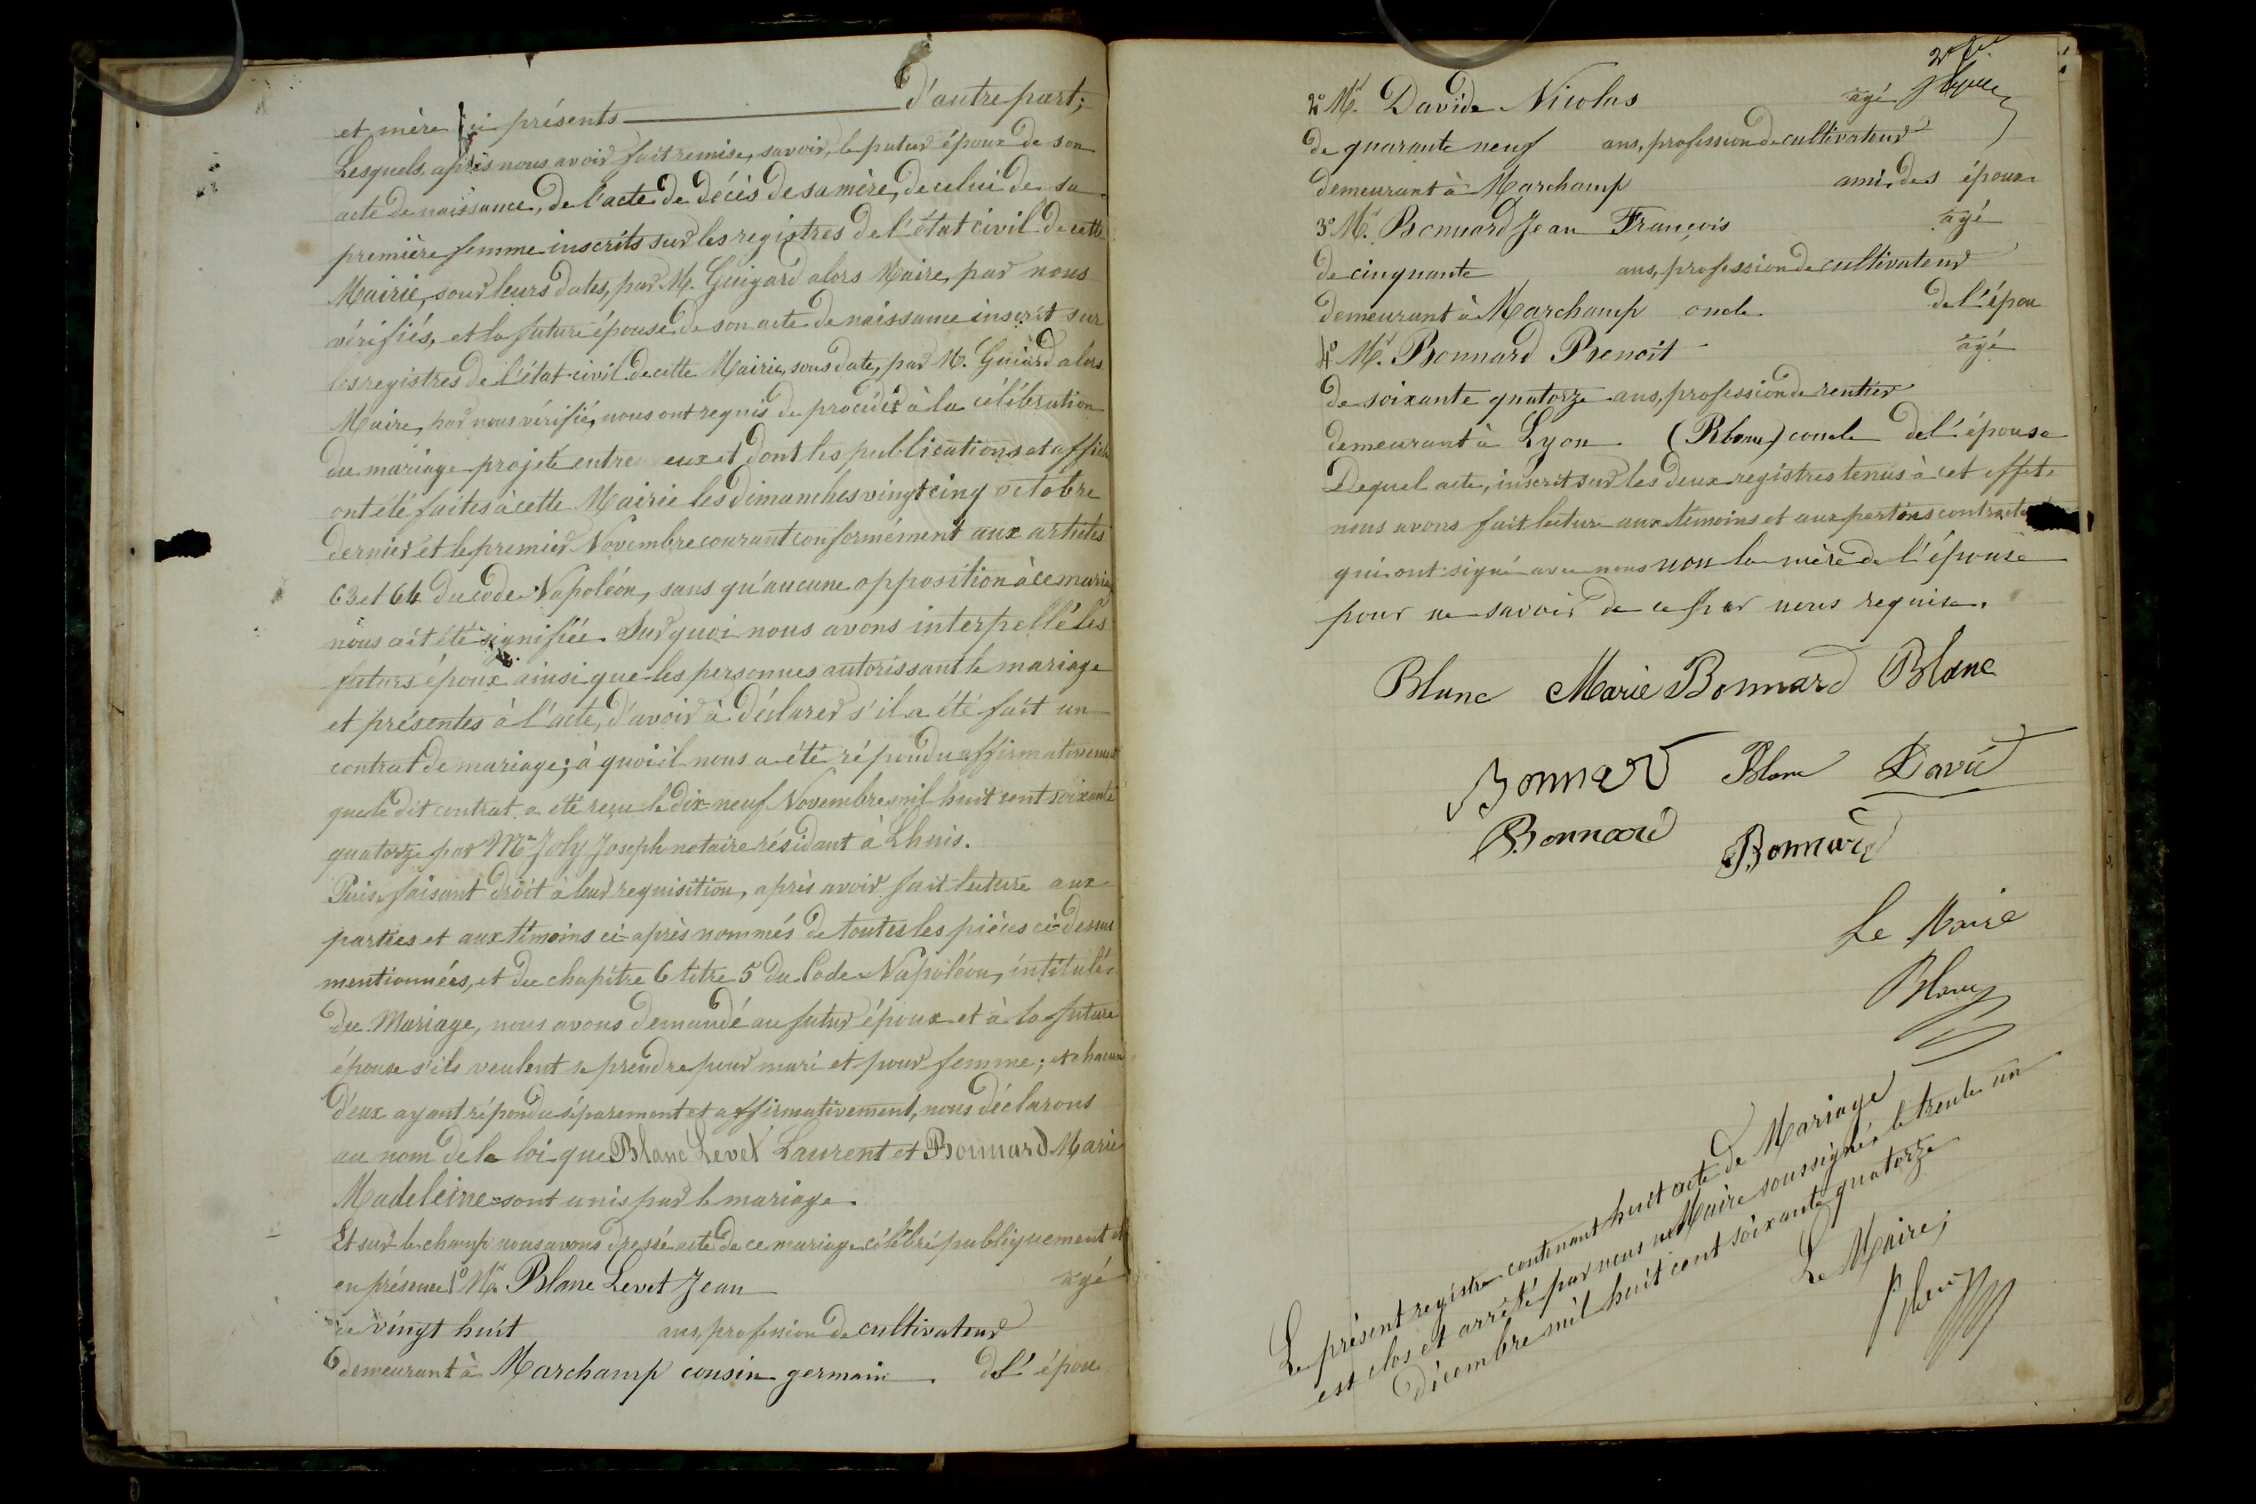 et mère ici présents d'autre part;
Lesquels, après nous avoir fait remise, savoir, le futur époux de son
acte de naissance, de l'acte de décès de sa mère, de celui de sa
première femme inscrits sur les registres de l'état civil de cette
Mairie, sour leurs dates, par M. Guigard alors Maire, par nous
vérifiés, et la future épouse de son acte de naissance inscrit sur
les registres de l'état-civil de cette Mairie, sous date, par M. Guiard alors
Maire, par nous vérifié, nous ont requis de procéder à la célébration
du mariage projeté entre eux et dont les publications et affich
ont été faites à cette Mairie les dimanches vingt cinq octobre
dernier et le premier Novembre courant conformément aux articles
63 et 64 du code Napoléon, sans qu'aucune opposition à ce maria
nous ait été signifiée. Sur quoi nous avons interpellé les
futurs époux ainsi que les personnes autorissant le mariage
et présentes à l'acte, d'avoir à déclarer s'il a été fait un
contrat de mariage; à quoi il nous a été répondu affirmativement
que le dit contrat a été reçu le dix-neuf Novembre mil huit cent soixante
quatorze par Me Joly Joseph notaire résidant à Lhuis.
Puis faisant droit à leur requisition, après avoir fait lecture aux
parties et aux témoins ci-après nommés de toutes les pièces ci-dessus
mentionnées, et du chapitre 6 titre 5 du Code Napoléon, intitulé
Du Mariage, nous avons demandé au futur époux et à la future
épouse s'ils veulent se prendre pour mari et pour femme; et chacun
d'eux ayant répondu séparement et affirmativement, nous déclarons
au nom de la loi que Blanc Levet Laurent et Bonnard Marie
Madeleine sont unis par le mariage.
Et sur le champ nous avons dressé acte de ce mariage célébré publiquement et
en présence 1° Mr. Blanc Levet Jean agé
de vingt huit ans, profession de cultivateur
demeurant à Marchamp cousin germain de l'épou
2° Mr. David Nicolas agé
de quarante neuf ans, profession de cultivateur
demeurant à Marchamp ami des époux
3° Mr. Bonnard Jean François agé
de cinquante ans, profession de cultivateur
demeurant à Marchamp oncle de l'épou
4° Mr. Bonnard Benoit agé
de soixante quatorze ans, profession de rentier
demeurant à Lyon (Rhône) oncle de l'épouse
Dequel acte, inscrit sur les deux registres tenus à cet effet
nous avons fait lecture aux témoins et aux parties contracta
qui ont signé avec nous non la mère de l'épouse
pour ne savoir de ce par nous requise.
Blanc Marie Bonnard Blanc
Bonnard Blanc David
Bonnard Bonnard
Le Maire
Blanc
Le présent registre contenant huit acte de Mariage
est clos et arrêté par nous Maire soussigné le trente un
décembre mil huit cent soixante quatorze
Le Maire;